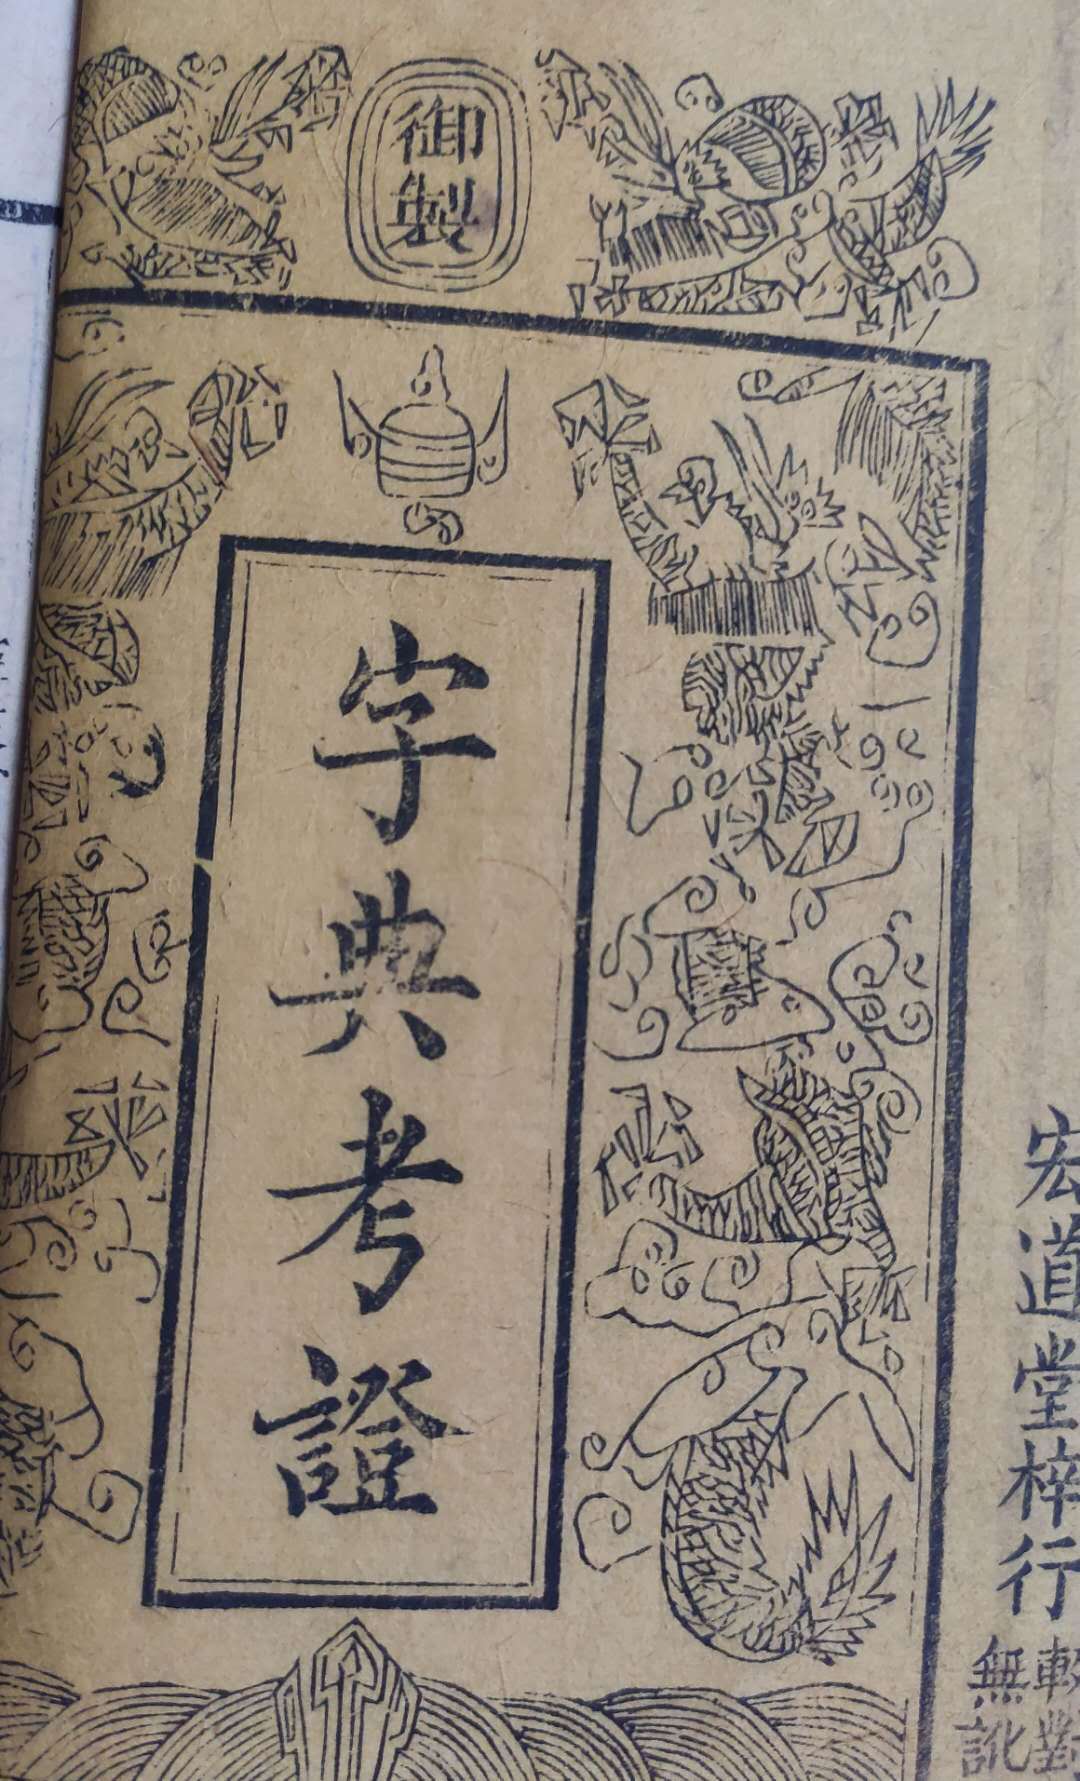 御製
字典考證
宏道堂梓行
較對
無訛